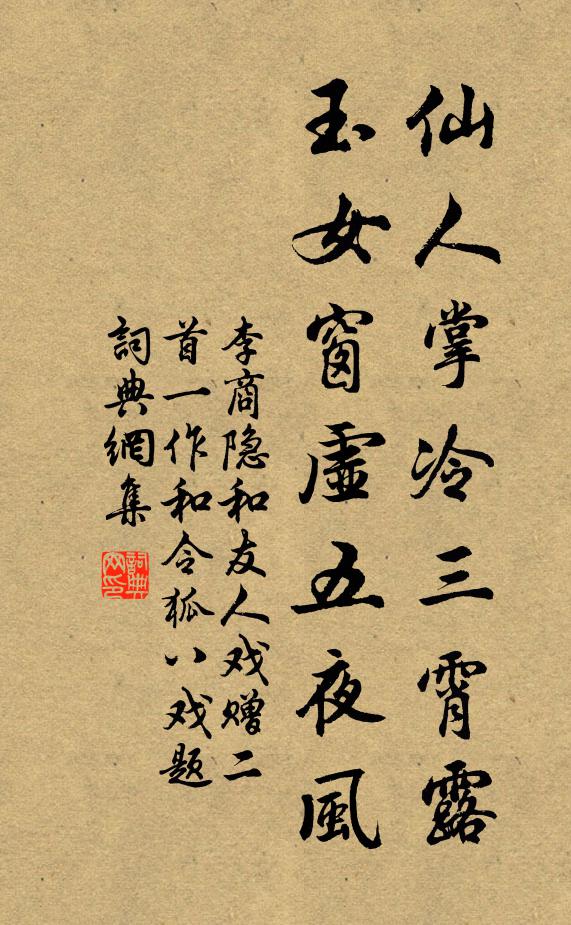 仙人掌冷三霄露
玉女窗虛五夜風
李商隐和友人戏赠二
首一作和令狐八戏题
詞典網集
詞典網印